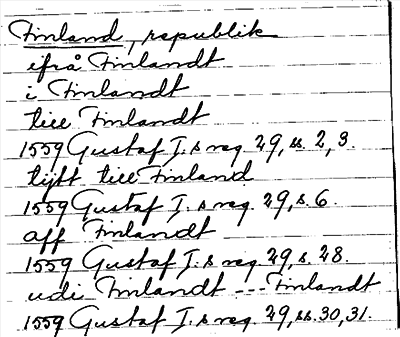 Finland, republik
ifrå Finlandt
i Finlandt
till Finlandt
1559 Gustaf I.s reg. 29, ss. 2, 3.
tijtt till Finland
1559 Gustaf I.s reg. 29, s. 6.
aff Finlandt
1559 Gustaf I.s reg. 29, s. 28.
udi Finlandt --- Finlandt
1559 Gustaf I.s reg. 29, ss. 30, 31.